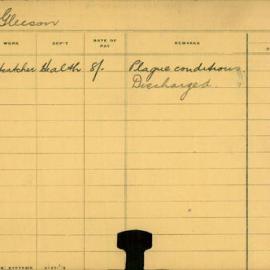 Gleeson
WORK DEP'T RATE OF PAY REMARKS
Health 8/- Plague conditions
Discharged.